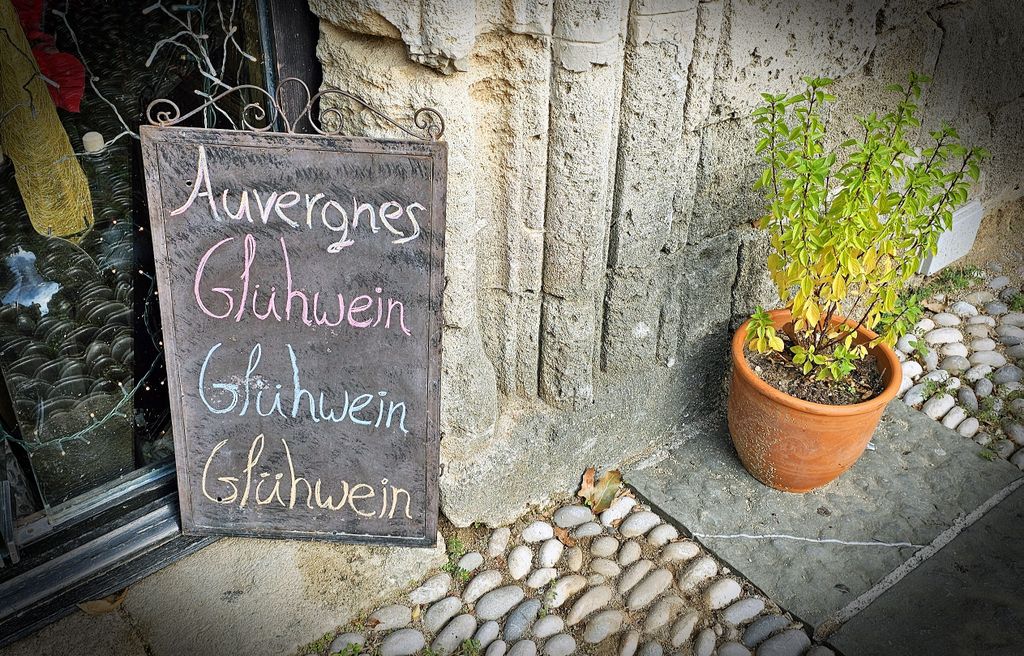 Auvergnes
Glühwein
Glühwein
Glühwein